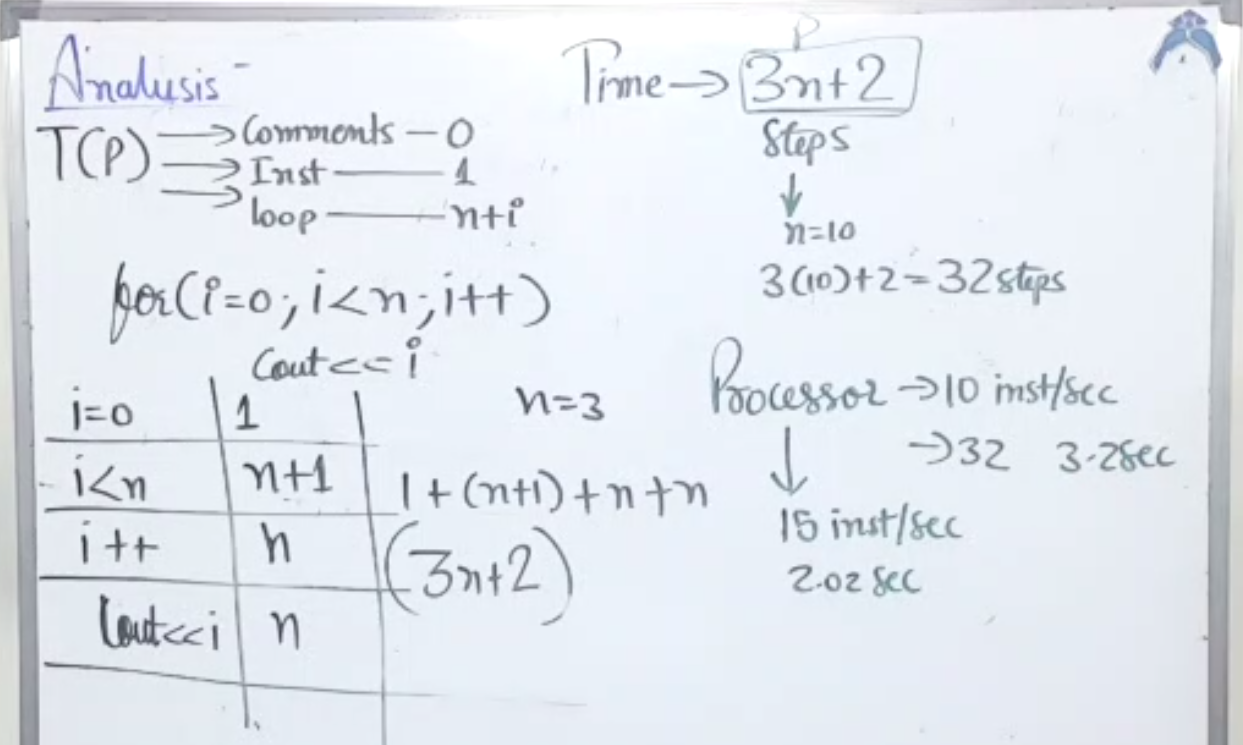 Analysis -
T(P) → Comments — 0
→ Inst — 1
→ loop — n+i
for(i=0; i<n; i++)
Cout<<i
i=0 1
i<n n+1
i++ n
Cout<<i n
n=3
1+(n+1)+n+n
(3n+2)
P
Time → 3n+2
Steps
↓
n=10
3(10)+2=32 steps
Processor → 10 inst/sec
→ 32 3.2 sec
↓
15 inst/sec
2.02 sec